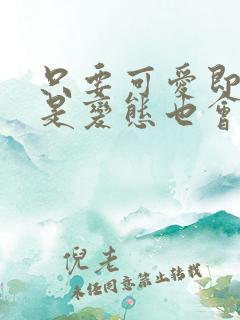 只要可愛即
是變態也會
倪老
未经同意禁止转载